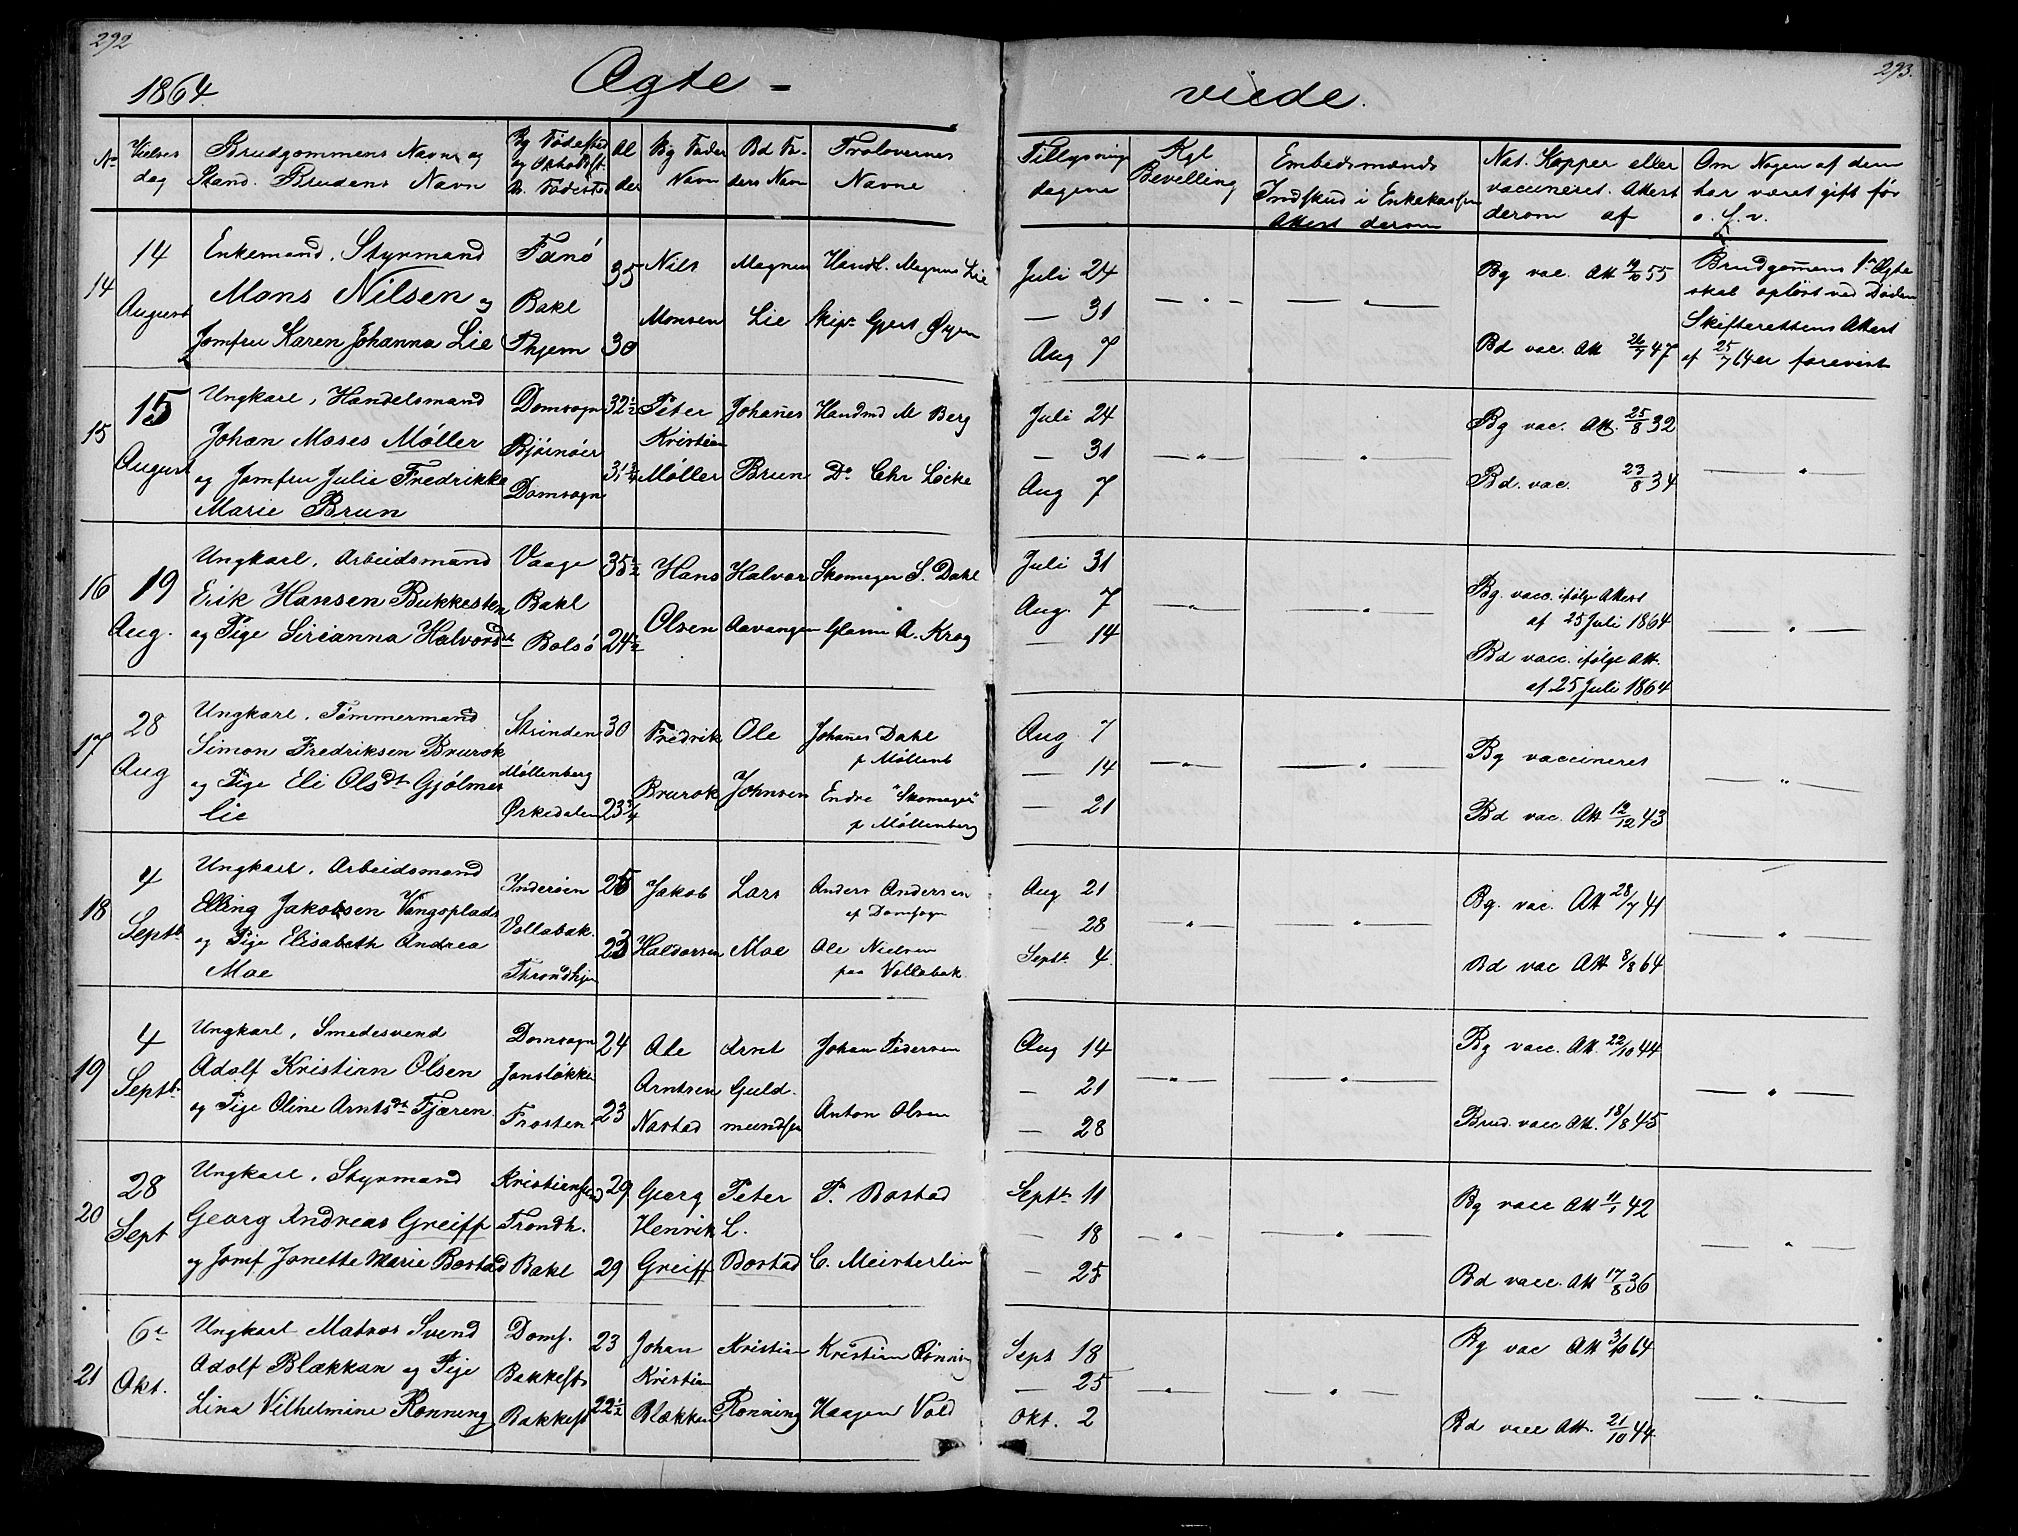 292
1864.
Ægte -
No
Vielses
dag
Brudgommens Navn og
Stand. Brudens Navn
Bg Fødested
og Opholdsst.
Bd. Fødested
Al
der
Bg Fader
Navn
Bd Fa-
ders Navn
Trolovernes
Navne
14
14
August
Enkemand, Styrmand
Mons Nilsen og
Jomfru Karen Johanna Lie
Fanø
Bakl
Thjem
35
30
Nils
Monsen
Magnus
Lie
Handl. Magnus Lie
Skipr Gjert Øyen
15
15
August
Ungkarl, Handelsmand
Johan Moses Møller
og Jomfru Julie Fredrikke
Marie Brun
Domsogn
Bjørnøer
Domsogn
32½
31¾
Peter
Kristian
Møller
Johanes
Brun
Handmd M Berg
Do Chr Løcke
16
19
Aug.
Ungkarl, Arbeidsmand
Erik Hansen Bukkesten
og Pige Sirianna Halvorsdt
Vaage
Bakl
Bolsø
35½
24½
Hans
Olsen
Halvor
Aavangen
Skomager S. Dahl
Glasm A. Krog
17
28
Aug
Ungkarl, Tømmermand
Simon Fredriksen Brurok
og Pige Eli Olsdt Gjølmes
lie
Strinden
Møllenberg
Ørkedalen
30
23¾
Fredrik
Brurok
Ole
Johnsen
Johanes Dahl
p Møllenb
Endre "Skomager"
p Møllenberg
18
4
Septb.
Ungkarl, Arbeidsmand
Elling Jakobsen Vangsplads
og Pige Elisabeth Andrea
Moe
Inderøen
Vollabak.
Throndhjem
25
23
Jakob
Haldorsen
Lars
Moe
Anders Andersen
af Domsogn
Ole Nielsen
paa Vollabak
19
4
Septb.
Ungkarl, Smedesvend
Adolf Kristian Olsen
og Pige Oline Arntsdt Fjæren
Domsogn
Jonsløkke
Frosten
24
23
Ole
Arntsen
Nastad
Arnt
Guld-
mundsen
Johan Pedersen
Anton Olsen
20
28
Sept
Ungkarl, Styrmand
Georg Andreas Greiff
og Jomf Jonette Marie Bostad
Kristianssund
Trondh.
Bakl
29
29
Georg
Henrik
Greiff
Peter
L.
Bostad
P. Bostad
C. Meisterlin
21
6te
Okt.
Ungkarl Matros Svend
Adolf Blækkan og Pige
Lina Vilhelmine Rønning
Doms.
Bakkest
Bakkest
23
22½
Johan
Kristian
Blækken
Kristian
Rønning
Kristian Rønning
Haagen Vold
293.
viede.
Tillysnings
dagene
Kgl
Bevelling
Embedsmænds
Indskud i Enkekassen
Attest derom
Nat. Kopper eller
vaccineret. Attest
derom af
Om Nogen af dem
har været gift før
o. s. v.
Juli 24
— 31
Aug 7
Bg vac. Att 19/10 55
Bd vac. Att 26/7 47
Brudgomens 1te Ægte
skab opløst ved Døden
Skifterettens Attest
af 25/7 64 er forevist
Juli 24
— 31
Aug 7
Bg vac. Att. 25/8 32
Bd. vac. 23/8 34
Juli 31
Aug. 7
— 14
Bg. vacc. ifølge Attest
af 25 Juli 1864
Bd vacc. ifølge Att.
af 25 Juli 1864
Aug. 7
— 14
— 21
Bg vaccineret
Bd vac. Att 12/12 43
Aug 21
— 28
Septb. 4
Bg. vac. Att 28/7 41
Bd vac Att 8/8 64
Aug 14
— 21
— 28
Bg vacc. Att. 22/10 44
Brud. vacc Att. 18/8 45
Septb. 11
— 18
— 25
Bg vacc Att 11/1 42
Bd vacc. Att 17/8 36
Sept 18
— 25
Okt. 2
Bg vac Att 3/10 64
Bd vacc Att. 21/10 44